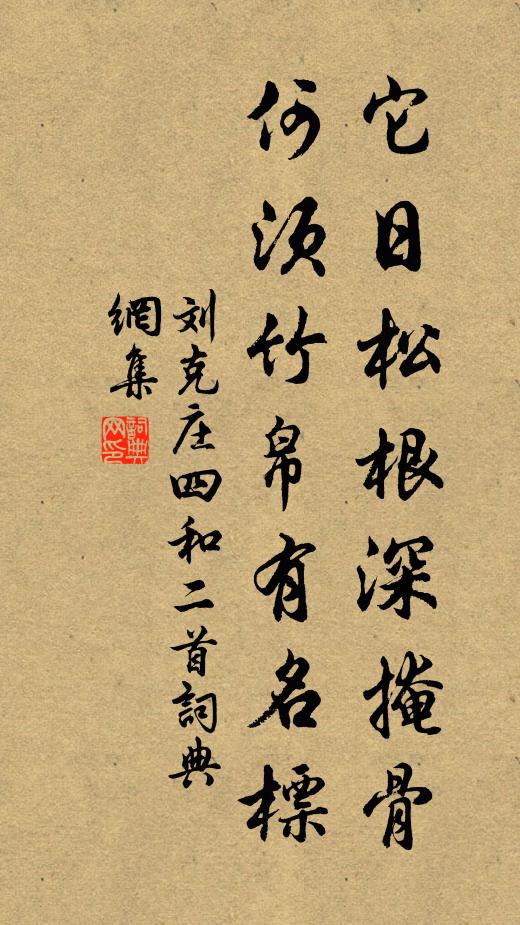 它日松根深掩骨
何须竹帛有名標
刘克庄四和二首詞典
網集
詞典
网印